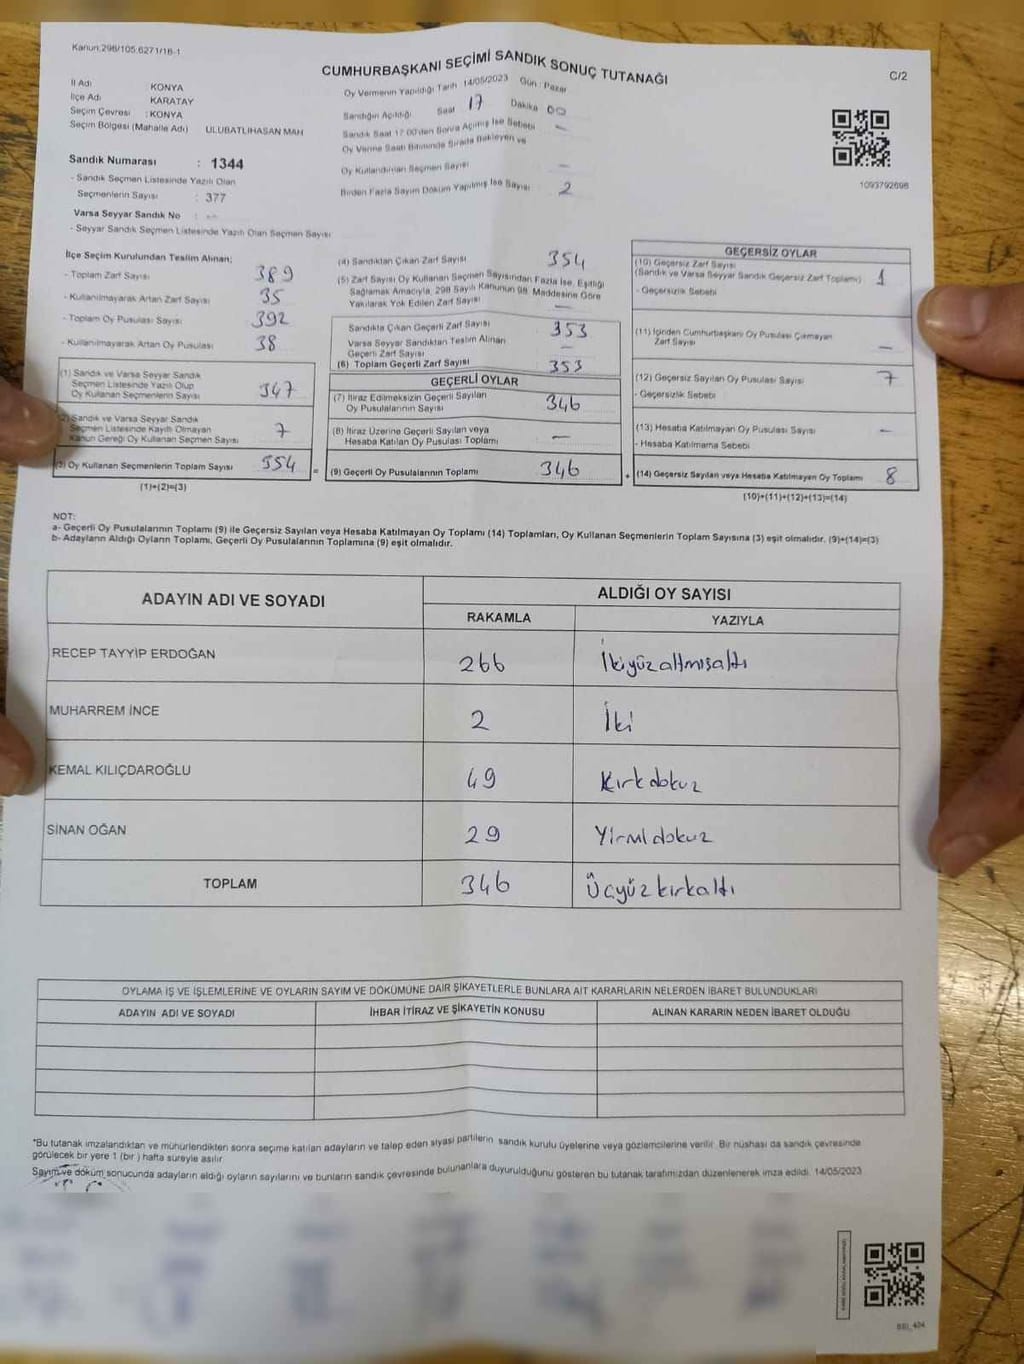 Kanun:298/105.6271/18-1
CUMHURBAŞKANI SEÇİMİ SANDIK SONUÇ TUTANAĞI
C/2
İl Adı KONYA
İlçe Adı KARATAY
Seçim Çevresi : KONYA
Seçim Bölgesi (Mahalle Adı) ULUBATLIHASAN MAH
Sandık Numarası : 1344
- Sandık Seçmen Listesinde Yazılı Olan
Seçmenlerin Sayısı : 377
Varsa Seyyar Sandık No : --
- Seyyar Sandık Seçmen Listesinde Yazılı Olan Seçmen Sayısı
Oy Vermenin Yapıldığı Tarih 14/05/2023 Gün : Pazar
Sandığın Açıldığı Saat 17 Dakika 00
Sandık Saat 17:00'den Sonra Açılmış İse Sebebi —
Oy Verme Saati Bitiminde Sırada Bekleyen ve
Oy Kullandırılan Seçmen Sayısı —
Birden Fazla Sayım Döküm Yapılmış İse Sayısı 2
1093792696
İlçe Seçim Kurulundan Teslim Alınan;
- Toplam Zarf Sayısı 389
- Kullanılmayarak Artan Zarf Sayısı 35
- Toplam Oy Pusulası Sayısı 392
- Kullanılmayarak Artan Oy Pusulası 38
(1) Sandık ve Varsa Seyyar Sandık
Seçmen Listesinde Yazılı Olup
Oy Kullanan Seçmenlerin Sayısı 347
(2) Sandık ve Varsa Seyyar Sandık
Seçmen Listesinde Kayıtlı Olmayan
Kanun Gereği Oy Kullanan Seçmen Sayısı 7
(3) Oy Kullanan Seçmenlerin Toplam Sayısı 354
(1)+(2)=(3)
(4) Sandıktan Çıkan Zarf Sayısı 354
(5) Zarf Sayısı Oy Kullanan Seçmen Sayısından Fazla İse, Eşitliği
Sağlamak Amacıyla, 298 Sayılı Kanunun 98. Maddesine Göre
Yakılarak Yok Edilen Zarf Sayısı —
Sandıkta Çıkan Geçerli Zarf Sayısı 353
Varsa Seyyar Sandıktan Teslim Alınan
Geçerli Zarf Sayısı —
(6) Toplam Geçerli Zarf Sayısı 353
GEÇERLİ OYLAR
(7) İtiraz Edilmeksizin Geçerli Sayılan
Oy Pusulalarının Sayısı 346
(8) İtiraz Üzerine Geçerli Sayılan veya
Hesaba Katılan Oy Pusulası Toplamı —
= (9) Geçerli Oy Pusulalarının Toplamı 346
GEÇERSİZ OYLAR
(10) Geçersiz Zarf Sayısı
(Sandık ve Varsa Seyyar Sandık Geçersiz Zarf Toplamı) 1
- Geçersizlik Sebebi
(11) İçinden Cumhurbaşkanı Oy Pusulası Çıkmayan
Zarf Sayısı —
(12) Geçersiz Sayılan Oy Pusulası Sayısı 7
- Geçersizlik Sebebi
(13) Hesaba Katılmayan Oy Pusulası Sayısı —
- Hesaba Katılmama Sebebi
+ (14) Geçersiz Sayılan veya Hesaba Katılmayan Oy Toplamı 8
(10)+(11)+(12)+(13)=(14)
NOT:
a- Geçerli Oy Pusulalarının Toplamı (9) ile Geçersiz Sayılan veya Hesaba Katılmayan Oy Toplamı (14) Toplamları, Oy Kullanan Seçmenlerin Toplam Sayısına (3) eşit olmalıdır. (9)+(14)=(3)
b- Adayların Aldığı Oyların Toplamı, Geçerli Oy Pusulalarının Toplamına (9) eşit olmalıdır.
ADAYIN ADI VE SOYADI
ALDIĞI OY SAYISI
RAKAMLA YAZIYLA
RECEP TAYYİP ERDOĞAN 266 İkiyüzaltmışaltı
MUHARREM İNCE 2 İki
KEMAL KILIÇDAROĞLU 49 Kırkdokuz
SİNAN OĞAN 29 Yirmidokuz
TOPLAM 346 Üçyüzkırkaltı
OYLAMA İŞ VE İŞLEMLERİNE VE OYLARIN SAYIM VE DÖKÜMÜNE DAİR ŞİKAYETLERLE BUNLARA AİT KARARLARIN NELERDEN İBARET BULUNDUKLARI
ADAYIN ADI VE SOYADI İHBAR İTİRAZ VE ŞİKAYETİN KONUSU ALINAN KARARIN NEDEN İBARET OLDUĞU
*Bu tutanak imzalandıktan ve mühürlendikten sonra seçime katılan adayların ve talep eden siyasi partilerin sandık kurulu üyelerine veya gözlemcilerine verilir. Bir nüshası da sandık çevresinde
görülecek bir yere 1 (bir) hafta süreyle asılır.
Sayım ve döküm sonucunda adayların aldığı oyların sayılarını ve bunların sandık çevresinde bulunanlara duyurulduğunu gösteren bu tutanak tarafımızdan düzenlenerek imza edildi. 14/05/2023